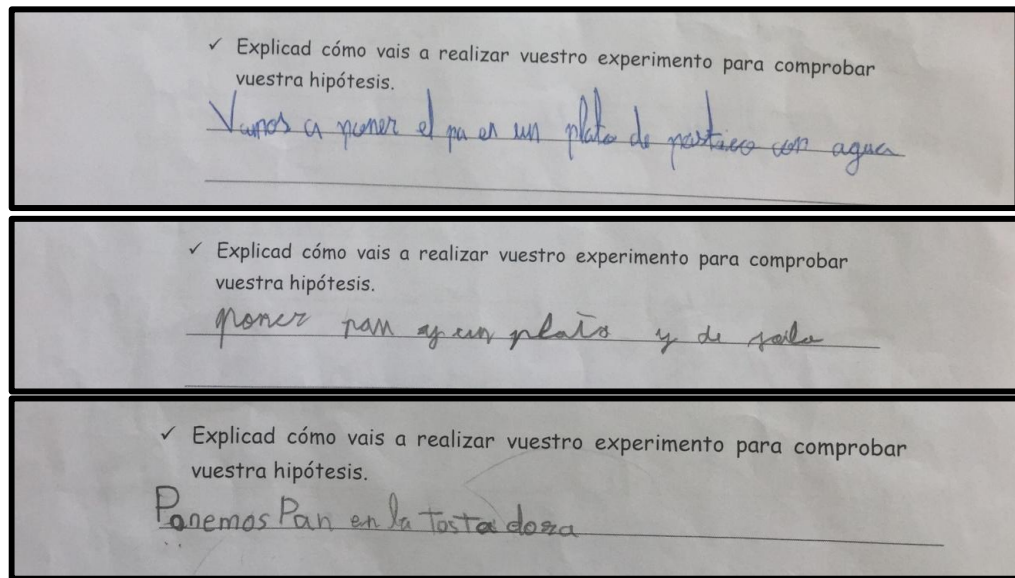 ✓ Explicad cómo vais a realizar vuestro experimento para comprobar
vuestra hipótesis.
Vamos a poner el pa en un plato de pastico con agua
✓ Explicad cómo vais a realizar vuestro experimento para comprobar
vuestra hipótesis.
poner pan y un plato y de
✓ Explicad cómo vais a realizar vuestro experimento para comprobar
vuestra hipótesis.
Ponemos Pan en la Tostadora